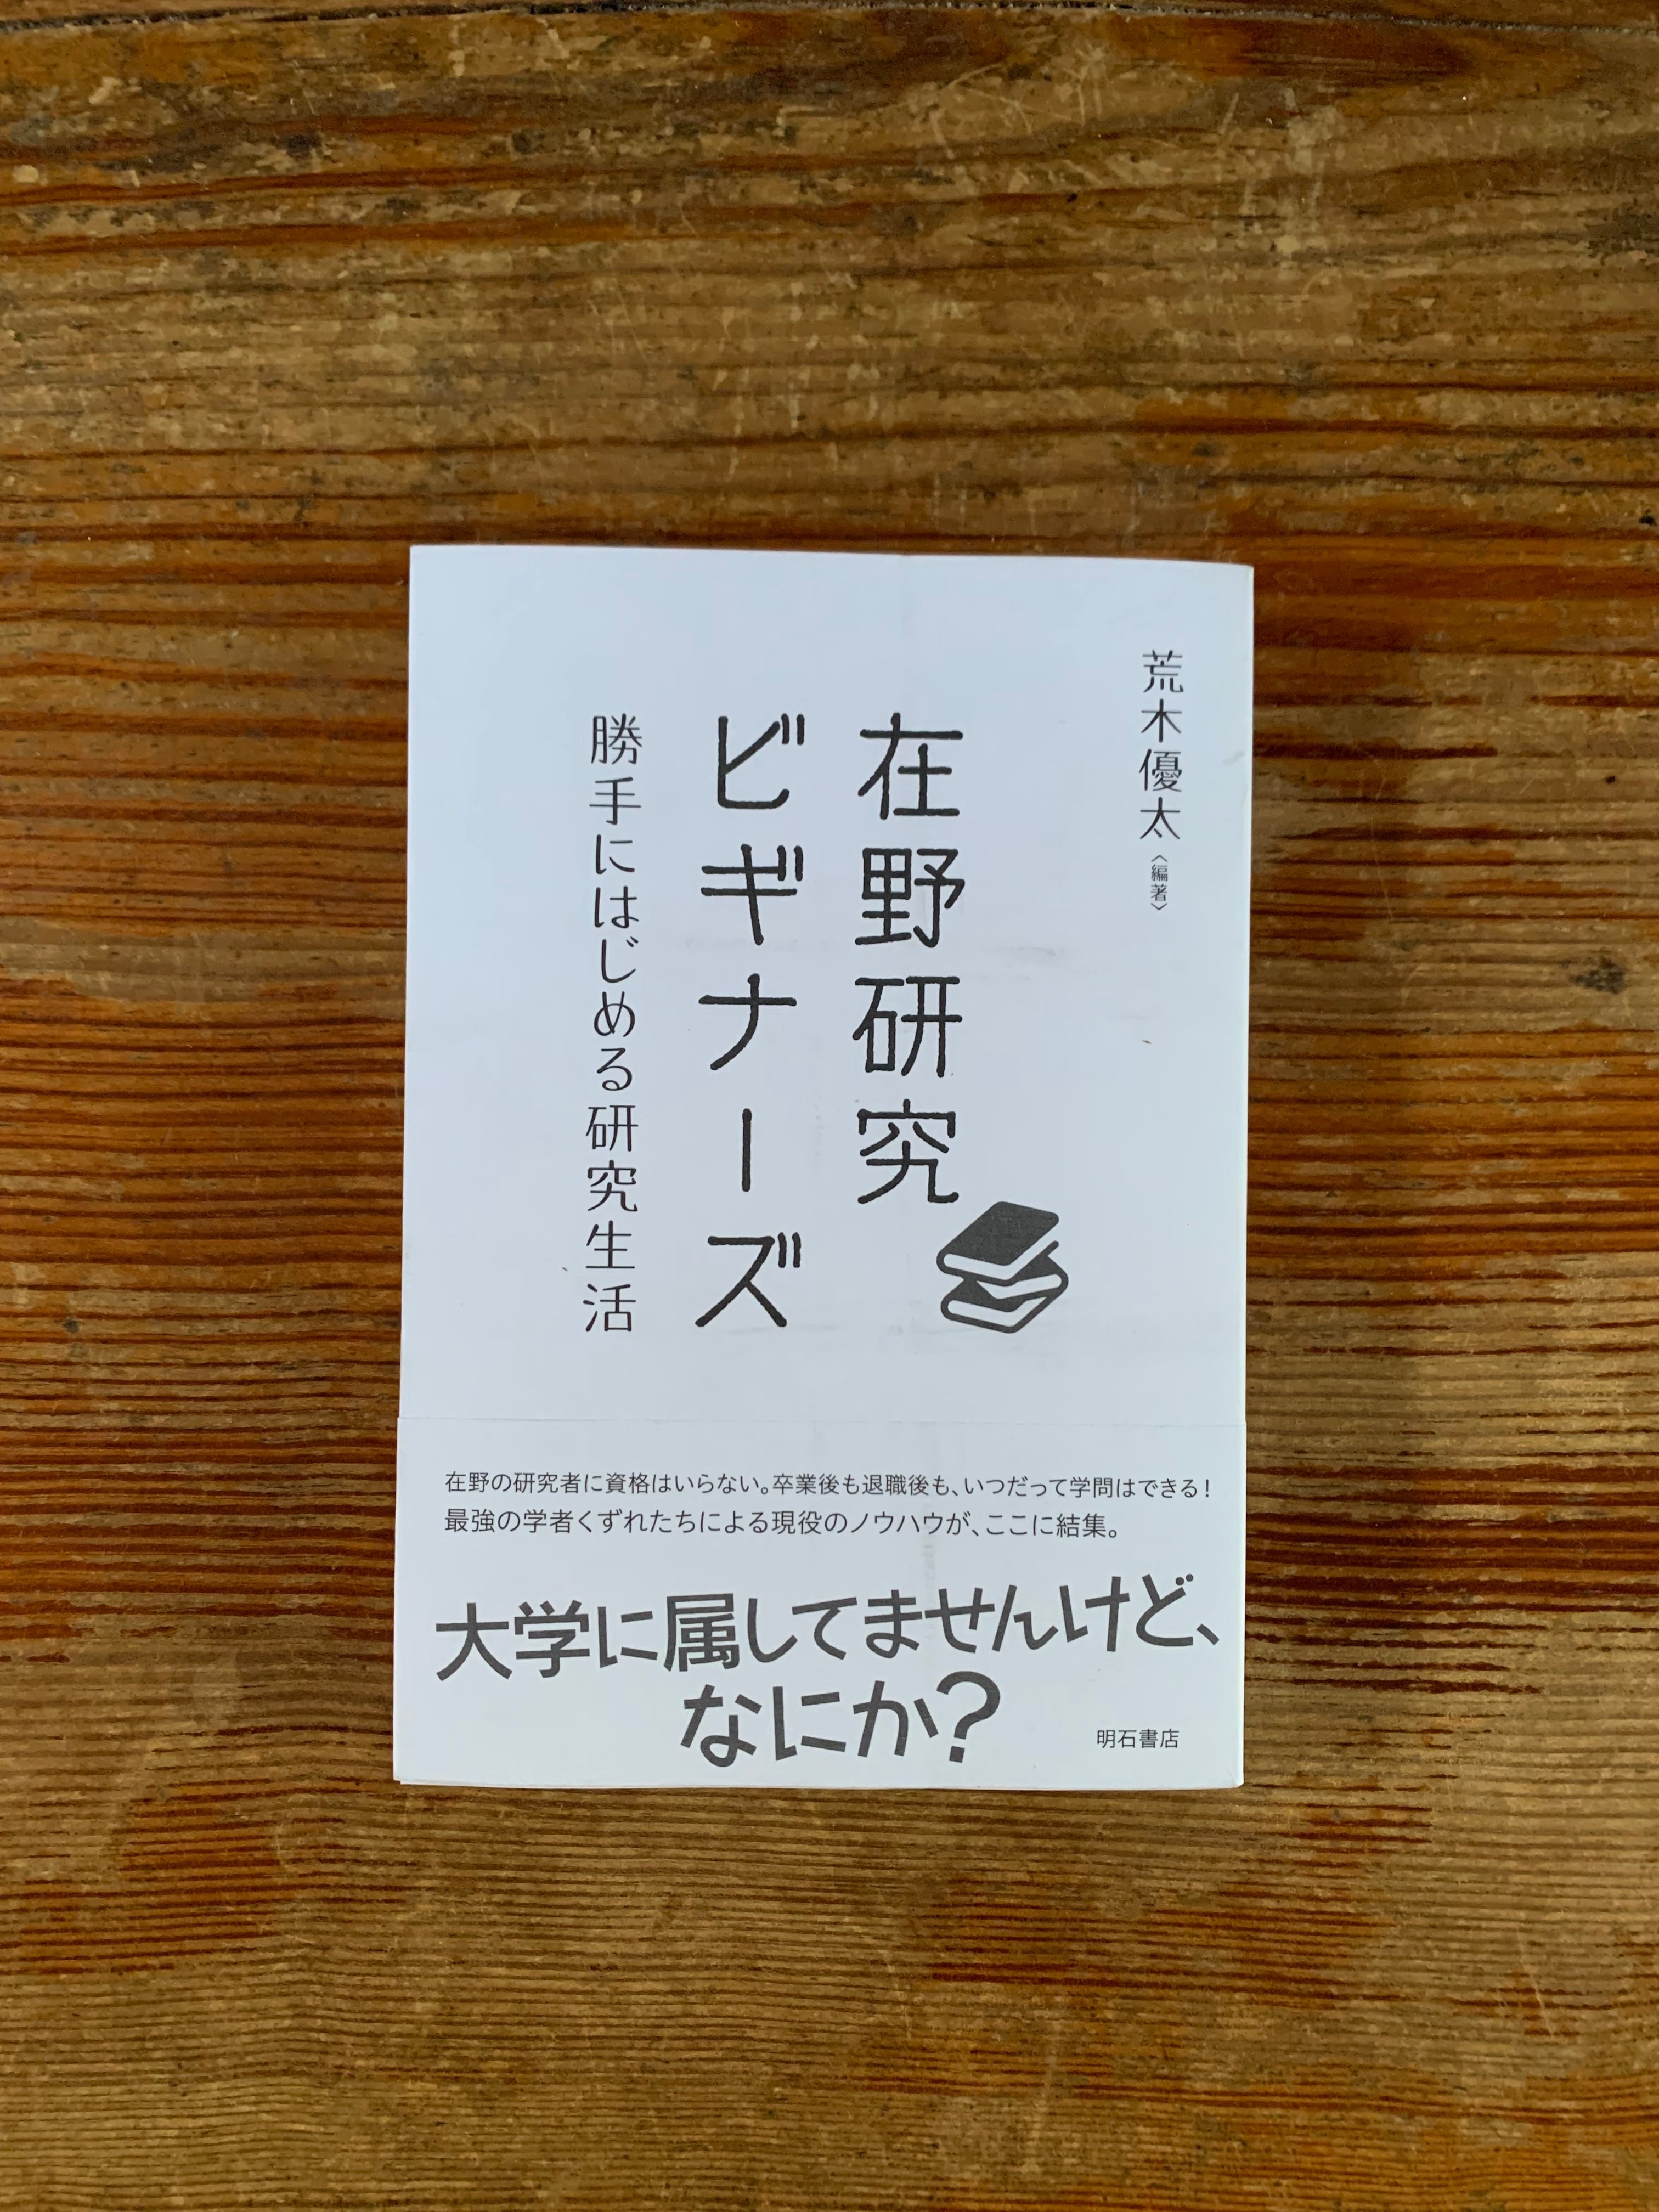 荒木優太〈編著〉
在野研究
ビギナーズ
勝手にはじめる研究生活
在野の研究者に資格はいらない。卒業後も退職後も、いつだって学問はできる!
最強の学者くずれたちによる現役のノウハウが、ここに結集。
大学に属してませんけど、
なにか?
明石書店